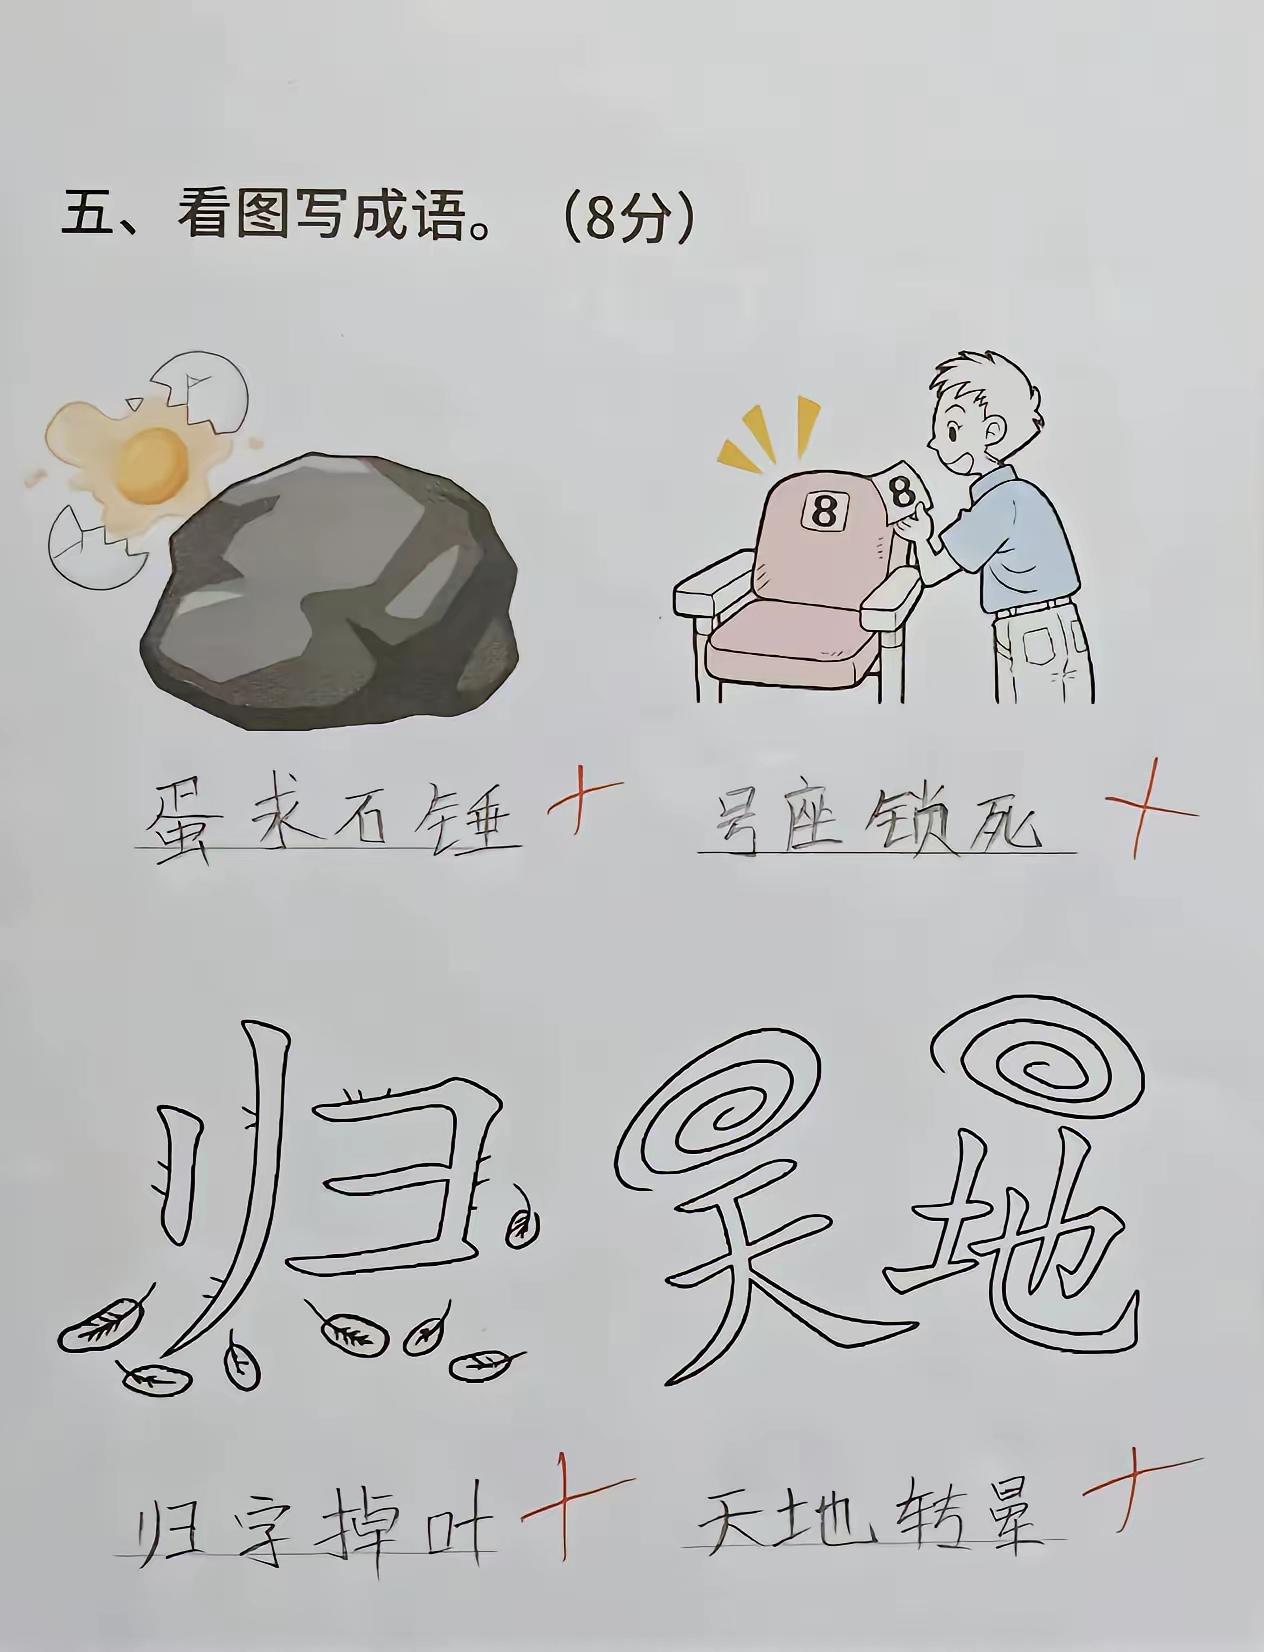 五、看图写成语。(8分)
8 8
蛋求石锤 号座锁死
归 天地
归字掉叶 天地转晕